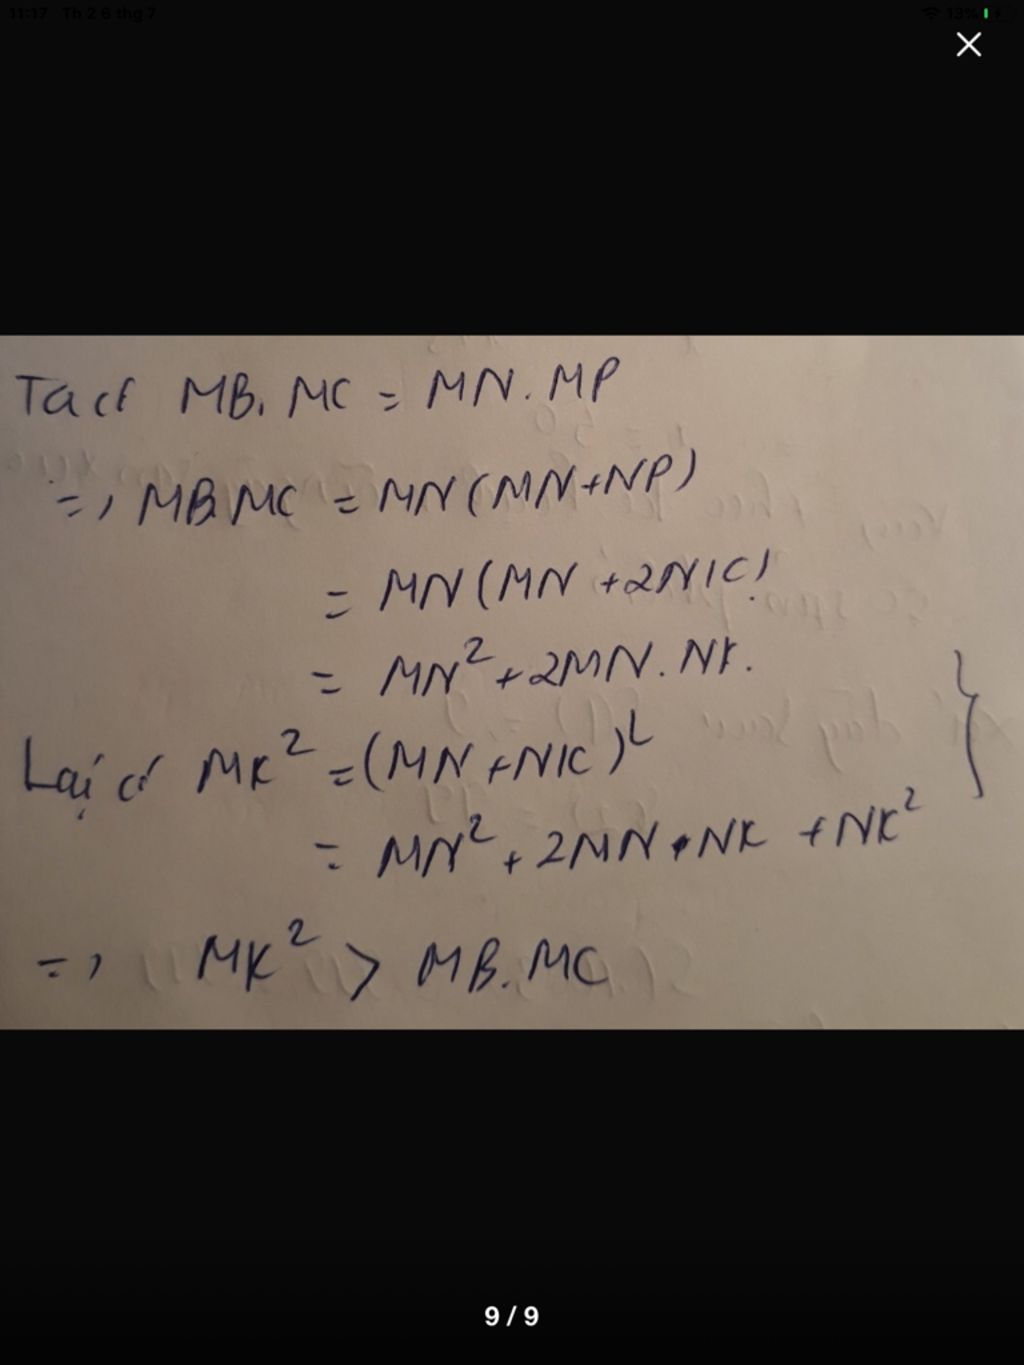 11:17 Th 2 6 thg 7 13%
Ta có MB. MC = MN. MP
=> MB.MC = MN(MN+NP)
= MN(MN +2NK)
= MN² + 2MN. NK.
Lại có MK² = (MN +NK)²
= MN² + 2MN.NK + NK²
=> MK² > MB.MC
9 / 9